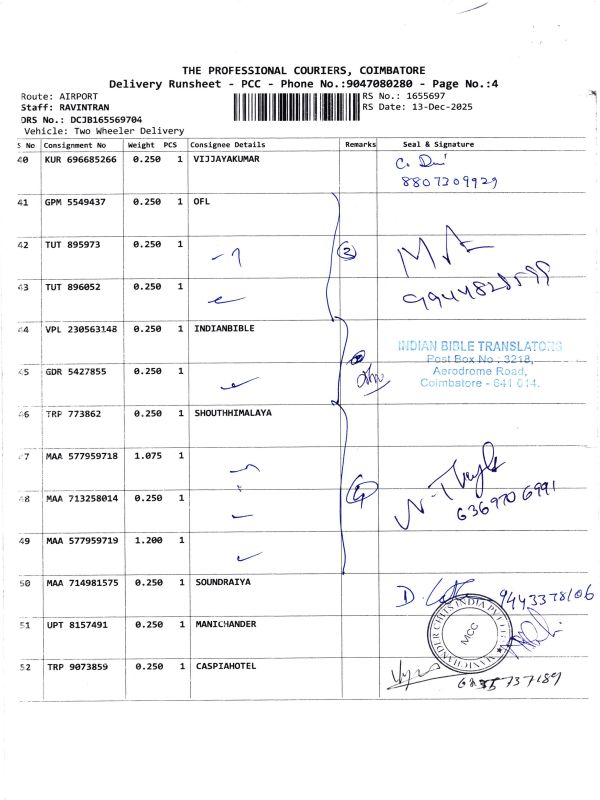 THE PROFESSIONAL COURIERS, COIMBATORE
Delivery Runsheet - PCC - Phone No.:9047080280 - Page No.:4
Route: AIRPORT
Staff: RAVINTRAN
DRS No.: DCJB165569704
Vehicle: Two Wheeler Delivery
RS No.: 1655697
RS Date: 13-Dec-2025
S No Consignment No Weight PCS Consignee Details Remarks Seal & Signature
40 KUR 696685266 0.250 1 VIJJAYAKUMAR
8807309929
41 GPM 5549437 0.250 1 OFL
42 TUT 895973 0.250 1 2
43 TUT 896052 0.250 1
44 VPL 230563148 0.250 1 INDIANBIBLE
INDIAN BIBLE TRANSLATORS
Post Box No : 3218,
Aerodrome Road,
Coimbatore - 641 014.
45 GDR 5427855 0.250 1
46 TRP 773862 0.250 1 SHOUTHHIMALAYA
47 MAA 577959718 1.075 1
48 MAA 713258014 0.250 1 4
6369706991
49 MAA 577959719 1.200 1
50 MAA 714981575 0.250 1 SOUNDRAIYA
9443378106
51 UPT 8157491 0.250 1 MANICHANDER
MANICHANDER CHITS INDIA PVT LTD
MCC
52 TRP 9073859 0.250 1 CASPIAHOTEL